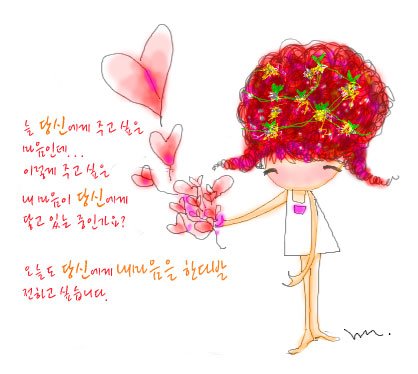 늘 당신에게 주고 싶은
마음인데...
이렇게 주고 싶은
내 마음이 당신에게
닿고 있는 중인가요?
오늘도 당신에게 내마음을 한다발
전하고 싶습니다.